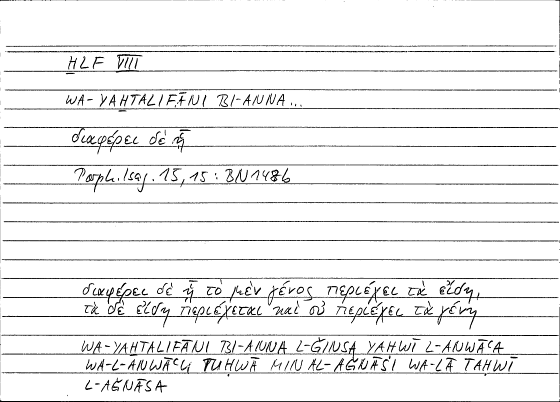 ḪLF VIII
WA-YAḪTALIFĀNI BI-ANNA...
διαφέρει δὲ ᾗ
Porph. Isag. 15, 15 : BN 148b
διαφέρει δὲ ᾗ τὸ μὲν γένος περιέχει τὰ εἴδη,
τὰ δὲ εἴδη περιέχεται καὶ οὐ περιέχει τὰ γένη
WA-YAḪTALIFĀNI BI-ANNA L-ǦINSA YAḤWĪ L-ANWĀʿA
WA-L-ANWĀʿU TUḤWĀ MIN AL-AǦNĀSI WA-LĀ TAḤWĪ
L-AǦNĀSA